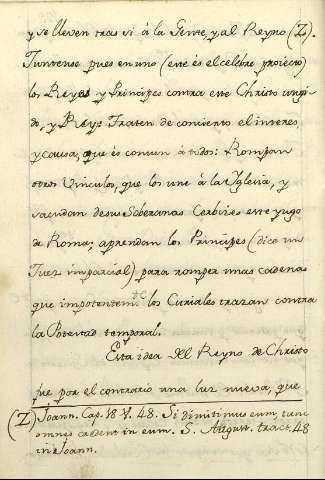 y se lleven tras si à la Gente, y al Reyno (Z).
Juntense pues en uno (este és el celebre proiecto)
los Reyes y Principes contra este Christo ungi-
do, y Rey: Traten de concierto el interes
y causa, que és comun à todos: Rompan
otros Vinculos, que los une à la Iglesia, y
sacudan de sus Soberanas Cerbizes este yugo
de Roma; aprendan los Principes (dice un
Juez imparcial) para romper unas cadenas
que impotentem.te los Curiales trazan contra
la Potestad temporal.
Esta idea del Reyno de Christo
fue por el contrario una luz nueva, que
(Z) Joann. Cap. 18 V. 48. Si dimitimus eum, tunc
omnes credent in eum. S. August. tract. 48
in Joann.